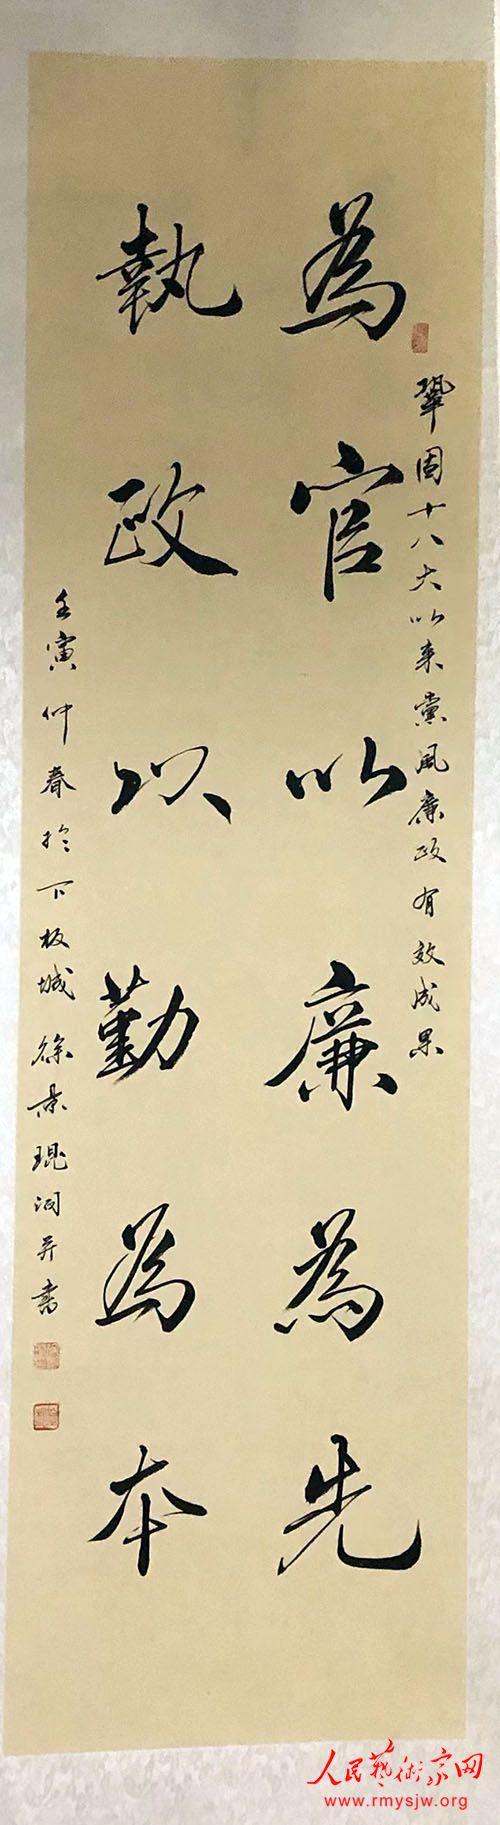 鞏固十八大以来黨風廉政有效成果
為官以廉為先
執政以勤為本
壬寅仲春於下板城徐景琨词并書
人民藝術家网
www.rmysjw.org